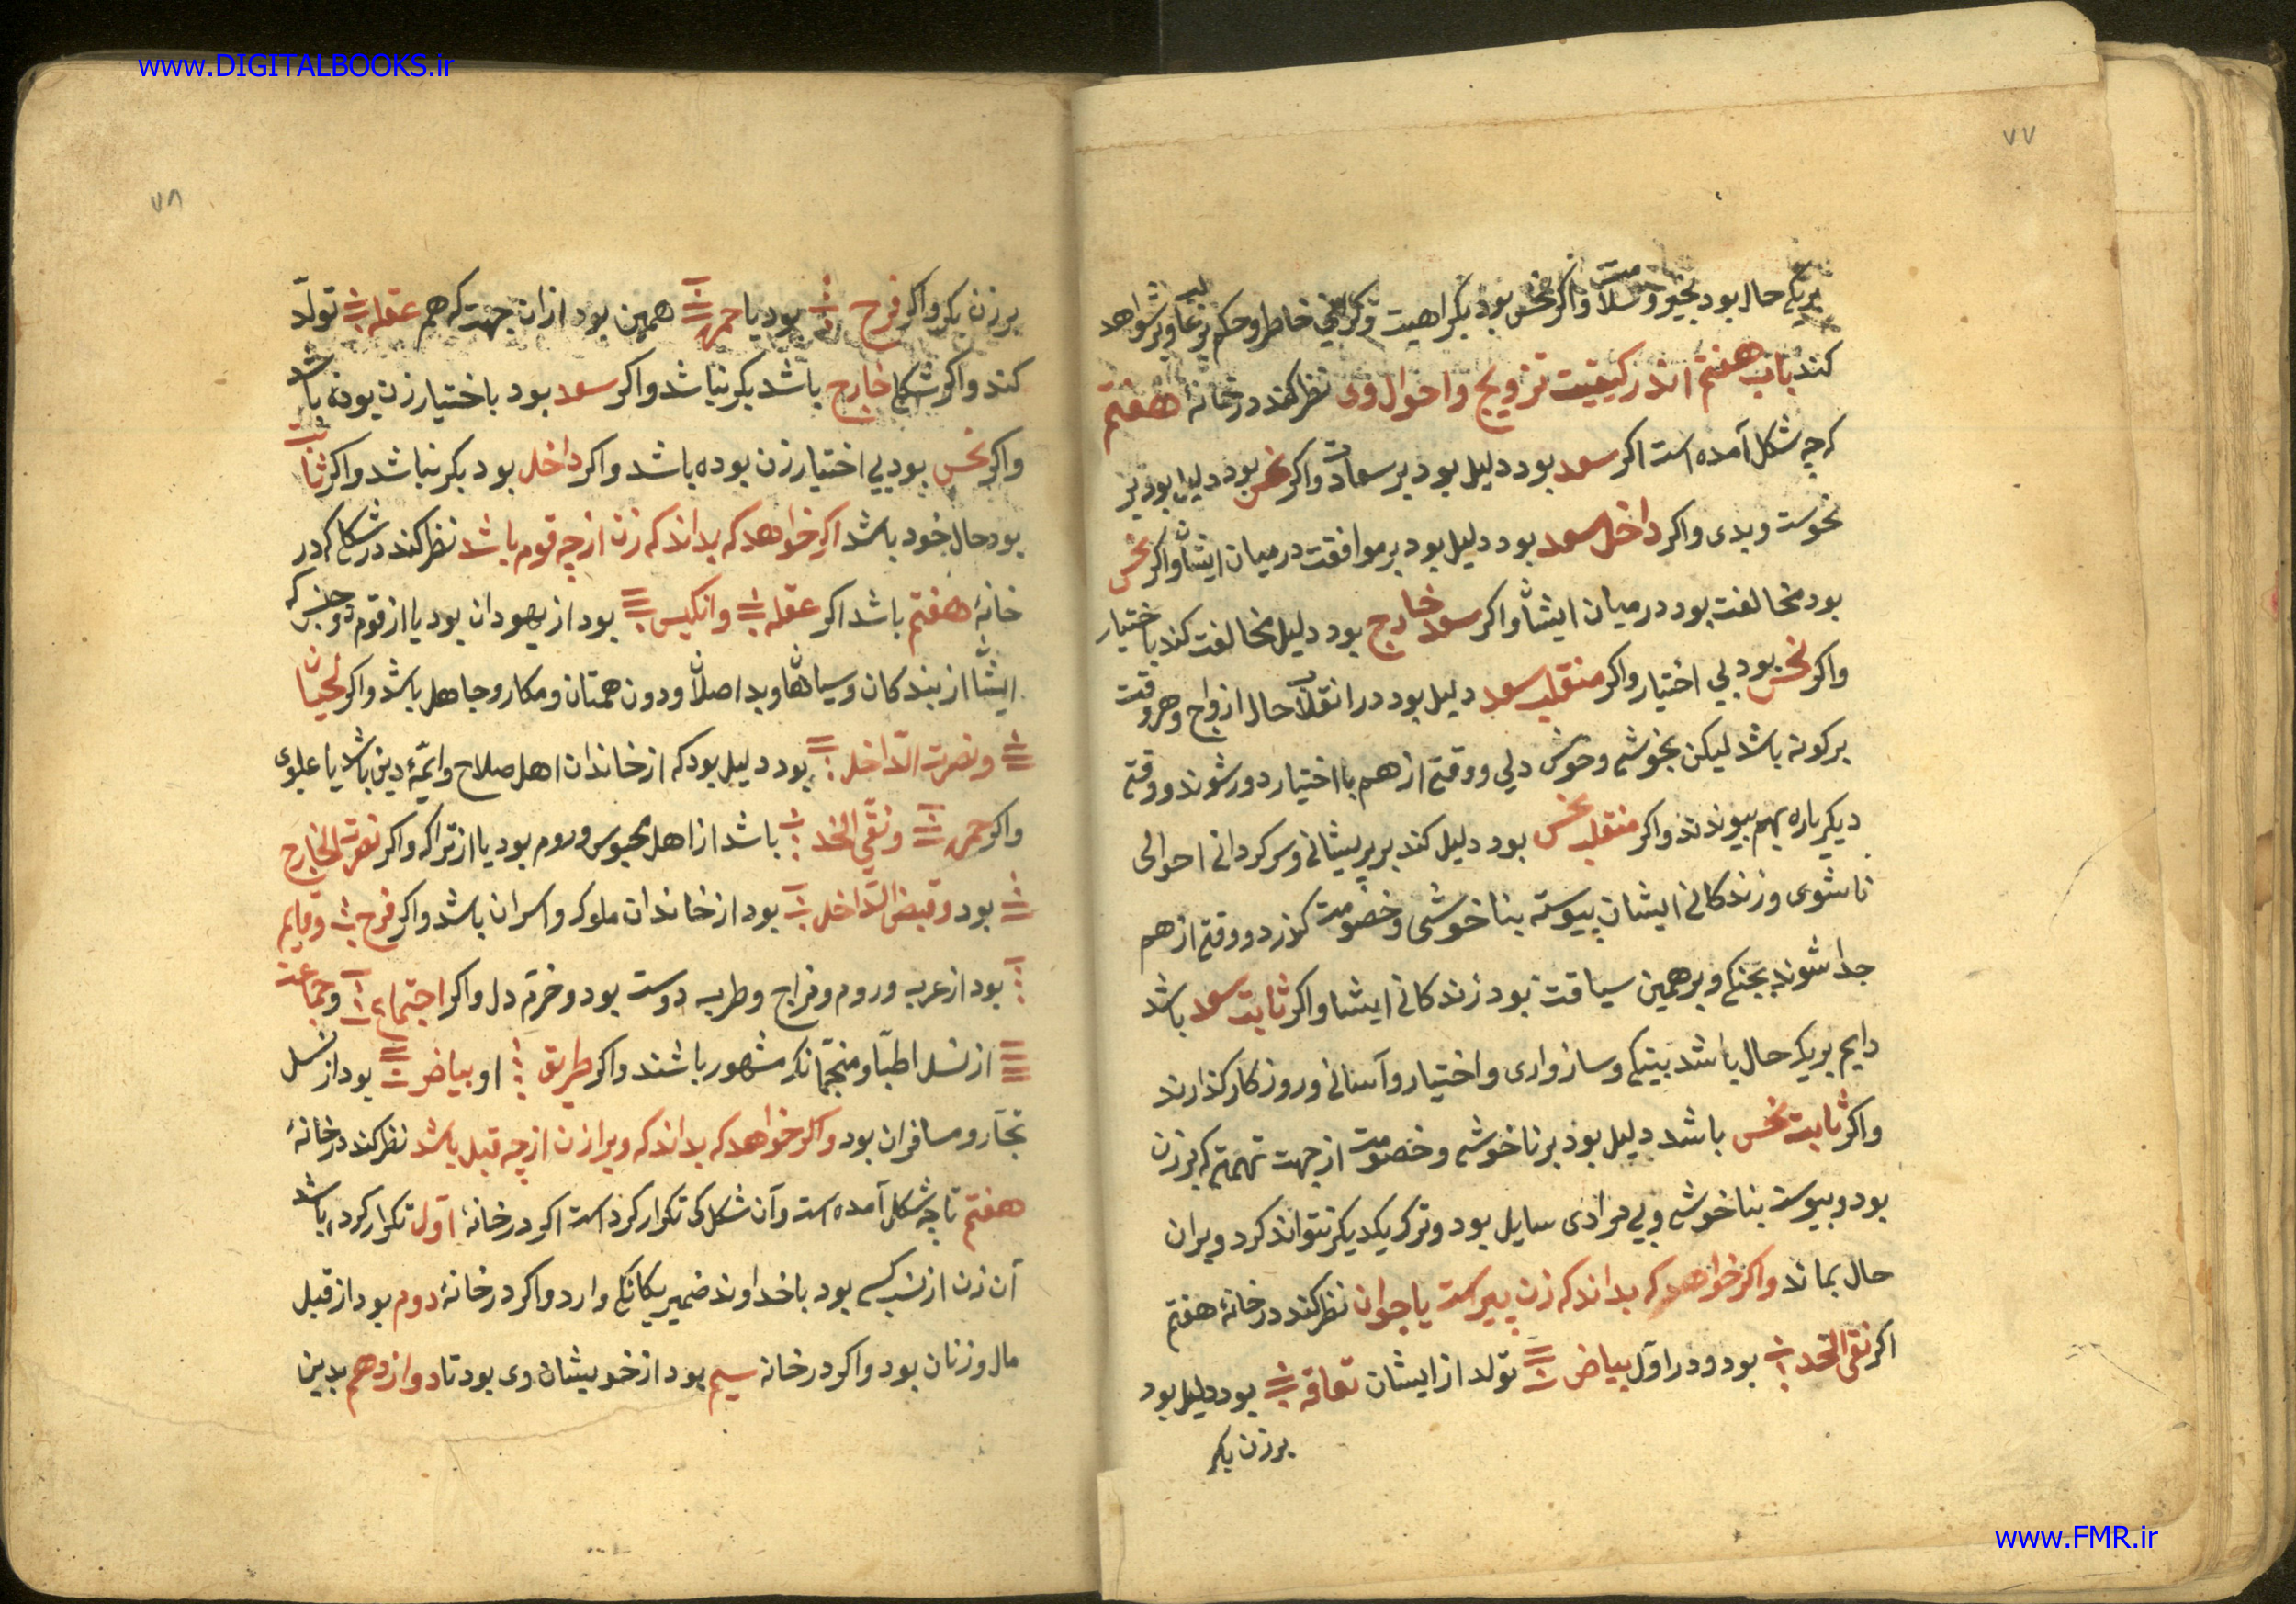 www.DIGITALBOOKS.ir
۷۷
بریک حال بود بخیر و سلامت و اگر نحس بود بکراهیت و کرانی خاطر و حکم بر غایب شواهد
کند باب هفتم اندر کیفیت تزویج و احوال وی نظر کند در خانهٔ هفتم
که چه شکل آمده است اکر سعد بود دلیل بود بر سعادت و اکر نحس بود دلیل بود بر
نحوست و بدی و اکر داخل سعد بود دلیل بود بر موافقت در میان ایشان و اکر نحس
بود مخالفت بود در میان ایشان و اکر سعد خارج بود دلیل مخالفت کند باختیار
و اکر نحس بود بی اختیار و اکر منقلب سعد دلیل بود در انقلاب حال ازواج و هر وقت
برکونه باشد لیکن بخوشی و خوش دلی و وقتی از هم با اختیار دور شوند و وقتی
دیکر باره بهم پیوندند و اکر منقلب نحس بود دلیل کند بر پریشانی و سرکردانی احوالی
ناشوی و زندکانی ایشان پیوسته بناخوشی و خصومت کذرد و وقتی از هم
جدا شوند بجنک و برهمین سیاقت بود زندکانی ایشا و اکر ثابت سعد باشد
دایم بریک حال باشد بنیکی و سازواری و اختیار و آسانی و روزکار کذارند
و اکر ثابت نحس باشد دلیل بود بر ناخوشی و خصومت از جهت تهمتی که بر زن
بود و پیوسته بناخوشی و بی مرادی سایل بود و ترک یکدیکر نتواند کرد و بران
حال بماند و اکر خواهد که بداند که زن پیر است یا جوان نظر کند در خانهٔ هفتم
اکر نقی الخد بود و در اول بیاض تولد از ایشان بود دلیل بود
بر زن بکر
۷۸
بر زن بکر و اکر فرح بود یا حمره همین بود از ان جهت که هم عقله تولّد
کند و اکر شکل خارج باشد بکر نباشد و اکر سعد بود باختیار زن بوده باشد
و اکر نحس بود بی اختیار زن بوده باشد و اکر داخل بود بکر نباشد و اکر ثابت
بود حال خود باشد اکر خواهد که بداند که زن از چه قوم باشد نظر کند در شکلی که در
خانهٔ هفتم باشد اکر عقله و انکیس بود از یهودان بود یا از قوم و جنس که
ایشان از بندکان و سیاهان و بد اصلان و دون همتان و مکار و جاهل باشد و اکر لحیان
و نصرت الدّاخل بود دلیل بود که از خاندان اهل صلاح و ایمّهٔ دین باشد یا علوی
و اکر حمره و نقی الخد باشد از اهل مجوس و روم بود یا از تراکه و اکر نصرت الخارج
بود و قبض الدّاخل بود از خاندان ملوک و اسران باشد و اکر فرح و قایم
بود از عرب و روم و مزاج و طرب دوست بود و خرّم دل و اکر اجتماع و جماعت
از نسل اطبّا و منجّمانکه مشهور باشند و اکر طریق او بیاض بود از نسل
تجّار و مسافران بود و اکر خواهد که بداند که ویرا زن از چه قبل باشد نظر کند در خانهٔ
هفتم تا چه شکل آمده است و آن شکل که تکرار کرد است اکر در خانهٔ اوّل تکرار کرده باشد
آن زن از نسب کسی بود باخداوند ضمیر یکانکی دارد و اکر در خانهٔ دوم بود از قبل
مال و زنان بود و اکر در خانه سیم بود از خویشان وی بود تا دوازدهم بدین
www.FMR.ir